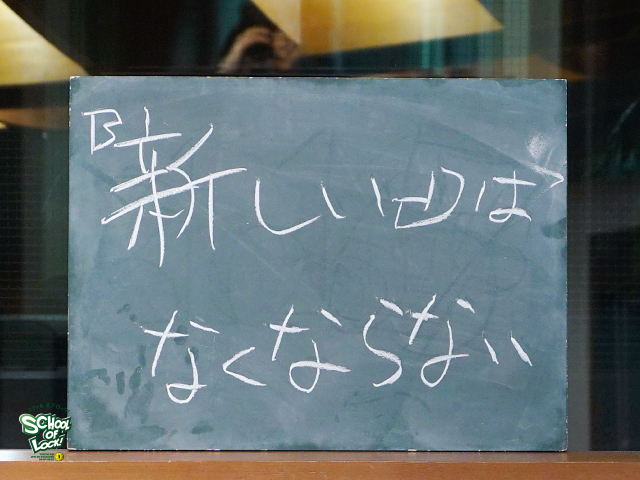 新しいのは
なくならない
SCHOOL
OF
LOCK!